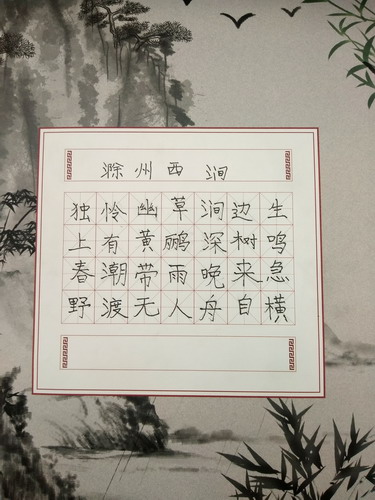 滁州西涧
独怜幽草涧边生
上有黄鹂深树鸣
春潮带雨晚来急
野渡无人舟自横